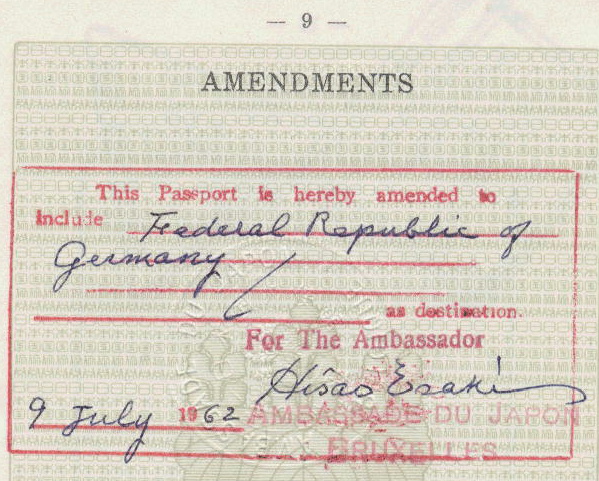 — 9 —
AMENDMENTS
This Passport is hereby amended to
include Federal Republic of
Germany
as destination.
For The Ambassador
Hisao Esaki
9 July 1962
AMBASSADE DU JAPON
BRUXELLES